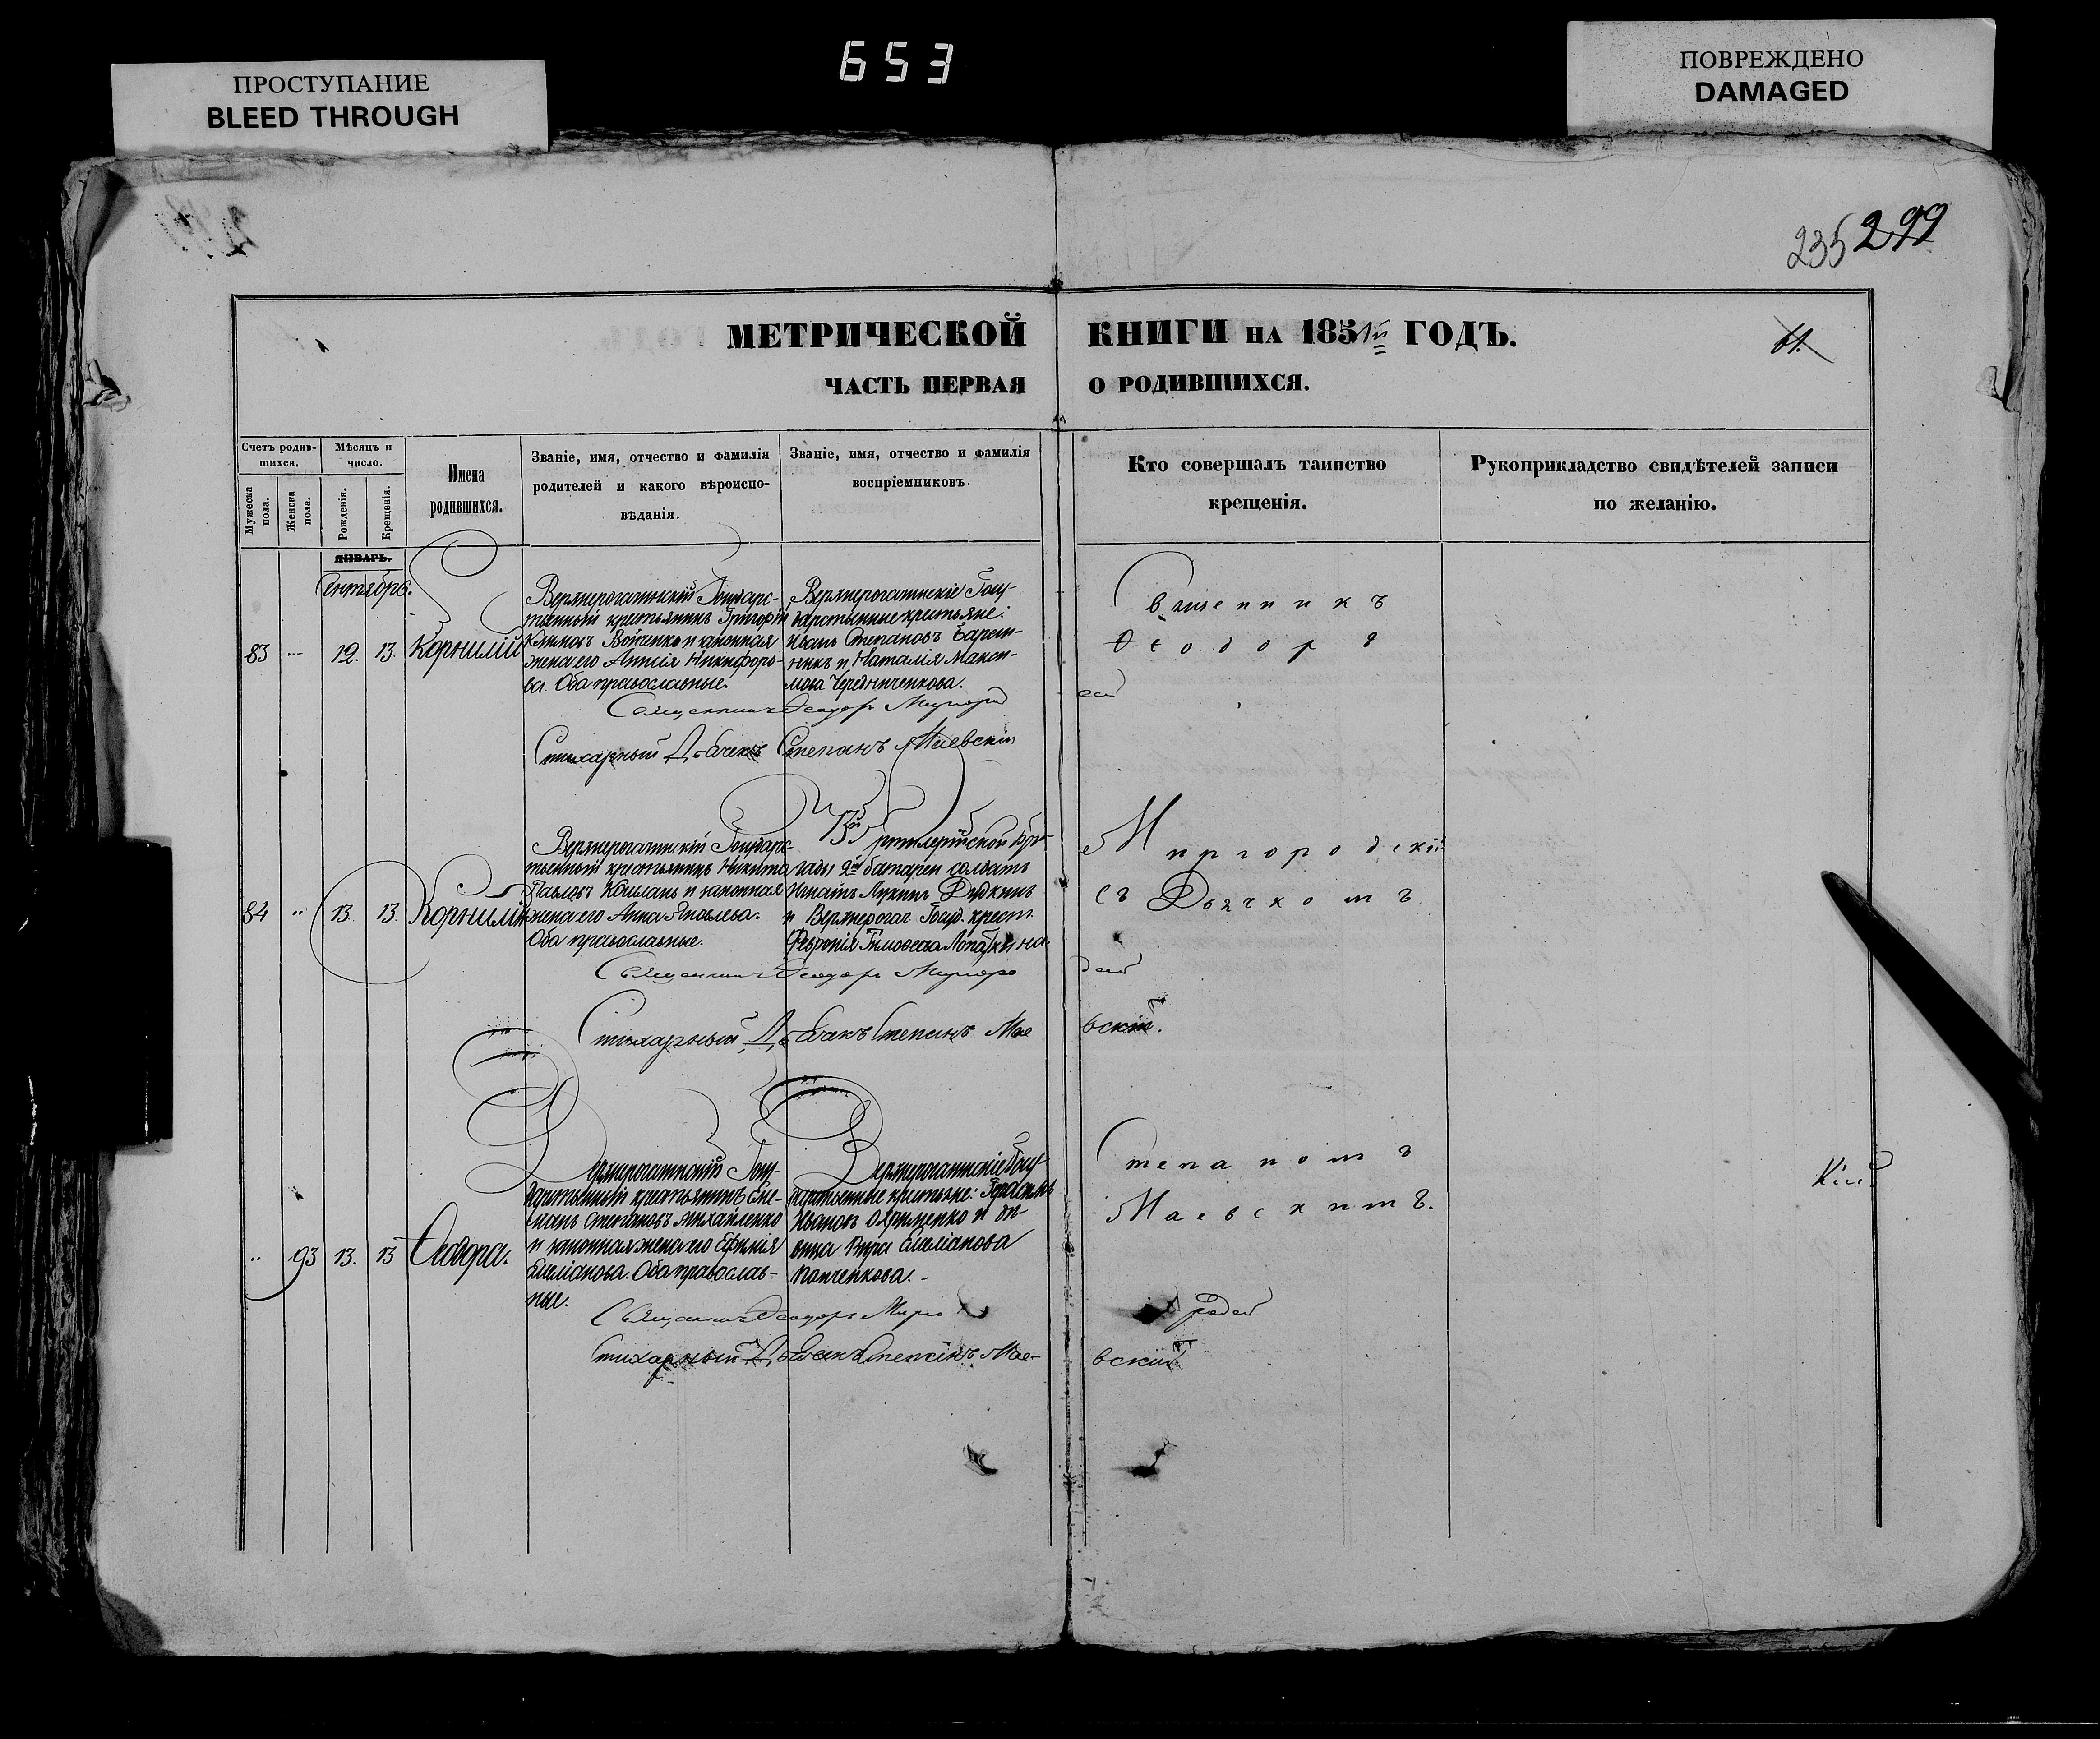 653
ПРОСТУПАНИЕ
BLEED THROUGH
ПОВРЕЖДЕНО
DAMAGED
235 299
МЕТРИЧЕСКОЙ КНИГИ НА 1851й ГОДЪ.
61.
ЧАСТЬ ПЕРВАЯ О РОДИВШИХСЯ.
Счетъ родив-
шихся.
Мужеска пола.
Женска пола.
Мѣсяцъ и
число.
Рожденія.
Крещенія.
Имена
родившихся.
Званіе, имя, отчество и фамилія
родителей и какого вѣроиспо-
вѣданія.
Званіе, имя, отчество и фамилія
воспріемниковъ.
Кто совершалъ таинство
крещенія.
Рукоприкладство свидѣтелей записи
по желанію.
ЯНВАРЬ.
Сентябрь.
83
12.
13.
Корнилій
Верхнерогачинскій Государс-
твенный крестьянинъ Григорій
Климовъ Войтенко и законная
жена его Анисія Никифоро-
ва. Оба православные.
Верхнерогачинскіе Госу-
дарственные крестьяне:
Иванъ Степановъ
и Наталія Макси-
мова Чередниченкова.
Священникъ Ѳеодоръ
Стихарный Дьячекъ Степанъ Маевскій
84
13.
13.
Корнилій
Верхнерогачинскій Государс-
твенный крестьянинъ Никита
Павловъ и законная
жена его Анна Яковлева.
Оба православные.
13й Артилерійской бри-
гады 2й батареи солдатъ
Игнатъ
и Верхнерогач. Госуд. крест.
Февронія Тимофеева Лопаткина.
Священникъ Ѳеодоръ Миргородскій
Стихарный Дьячекъ Степанъ Маевскій.
93
13.
13
Ѳеодора.
Верхнерогачинскій Госу-
дарственный крестьянинъ
Степановъ Михайленко
и законная жена его Ефимія
Емеліанова. Оба православ-
ные.
Верхнерогачинскіе Госу-
дарственные крестьяне: Герасимъ
Ивановъ Охрименко и дѣ-
вица Емеліанова
Священникъ Ѳеодоръ Миргородскій
Стихарный Дьячекъ Степанъ Маевскій
Священникъ
Ѳеодоръ
Миргородскій
съ Дьячкомъ
Степаномъ
Маевскимъ.